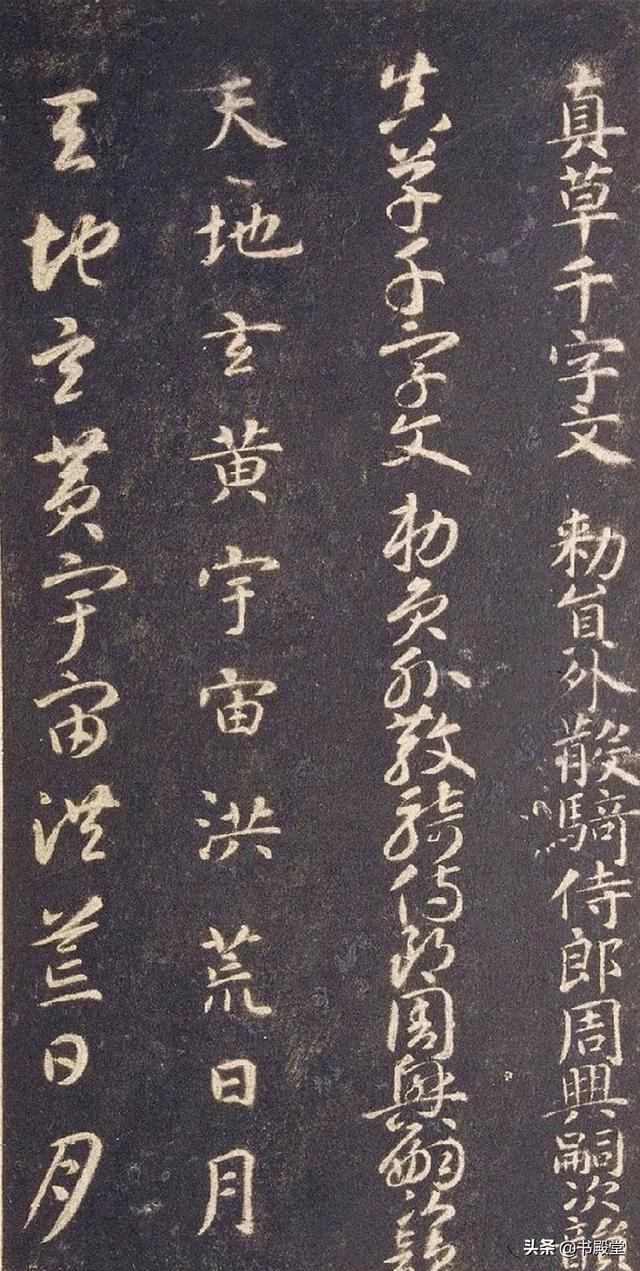 真草千字文 勑員外散騎侍郎周興嗣次韻
真草千字文 勑員外散騎侍郎周興嗣次韻
天地玄黃宇宙洪荒日月
天地玄黃宇宙洪荒日月
头条 @书殿堂